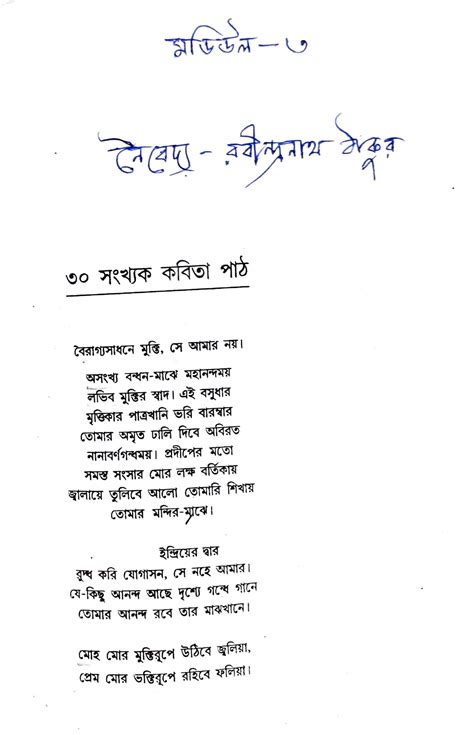 মডিউল – ৩
নৈবেদ্য – রবীন্দ্রনাথ ঠাকুর
৩০ সংখ্যক কবিতা পাঠ
বৈরাগ্যসাধনে মুক্তি, সে আমার নয়।
অসংখ্য বন্ধন-মাঝে মহানন্দময়
লভিব মুক্তির স্বাদ। এই বসুধার
মৃত্তিকার পাত্রখানি ভরি বারম্বার
তোমার অমৃত ঢালি দিবে অবিরত
নানাবর্ণগন্ধময়। প্রদীপের মতো
সমস্ত সংসার মোর লক্ষ বর্তিকায়
জ্বালায়ে তুলিবে আলো তোমারি শিখায়
তোমার মন্দির-মাঝে।
ইন্দ্রিয়ের দ্বার
রুদ্ধ করি যোগাসন, সে নহে আমার।
যে-কিছু আনন্দ আছে দৃশ্যে গন্ধে গানে
তোমার আনন্দ রবে তার মাঝখানে।
মোহ মোর মুক্তিরূপে উঠিবে জ্বলিয়া,
প্রেম মোর ভক্তিরূপে রহিবে ফলিয়া।